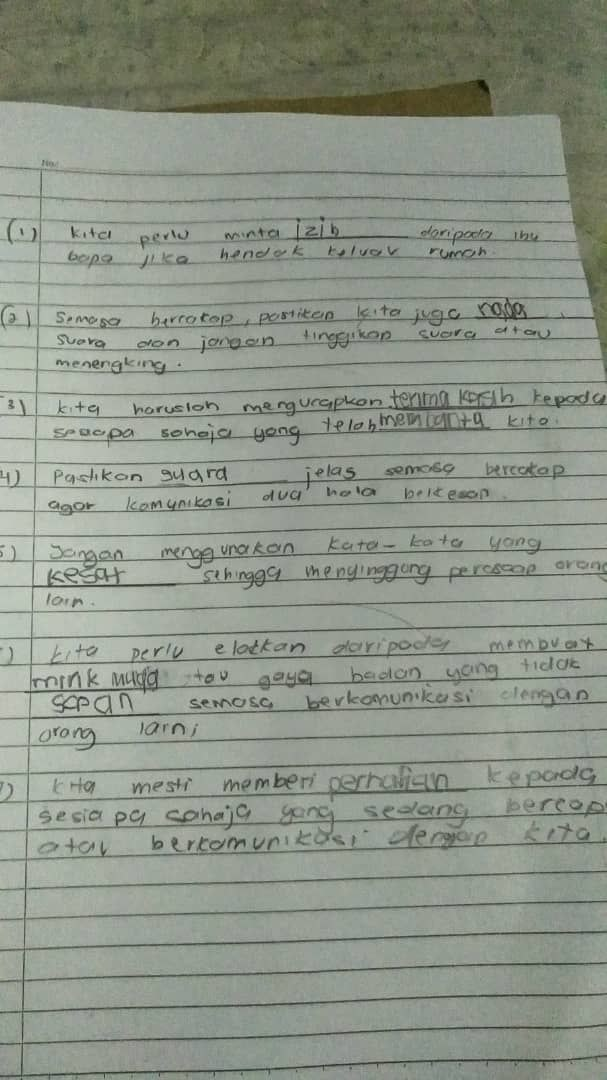 No:
(1) kita perlu minta izib daripada ibu
bapa jika hendak keluar rumah.
(2) Semasa bercakap, pastikan kita juga nada
suara dan jangan tinggikan suara atau
menengking.
3) kita haruslah mengucapkan terima kasih kepada
sesapa sahaja yang telah memban ta kita.
4) Pastikan suara jelas semasa bercakap
agar komunikasi dua hala berkesan.
5) Jangan menggunakan kata-kata yang
kesat sehingga menyinggung perasaan orang
lain.
) kita perlu elatkan daripada membuat
mink muda tau gaya badan yang tidak
sopan semasa berkomunikasi dengan
orang larni
) kita mesti memberi perhatian kepada
sesia pa sahaja yang sedang bercap
atau berkomunikasi dengan kita.